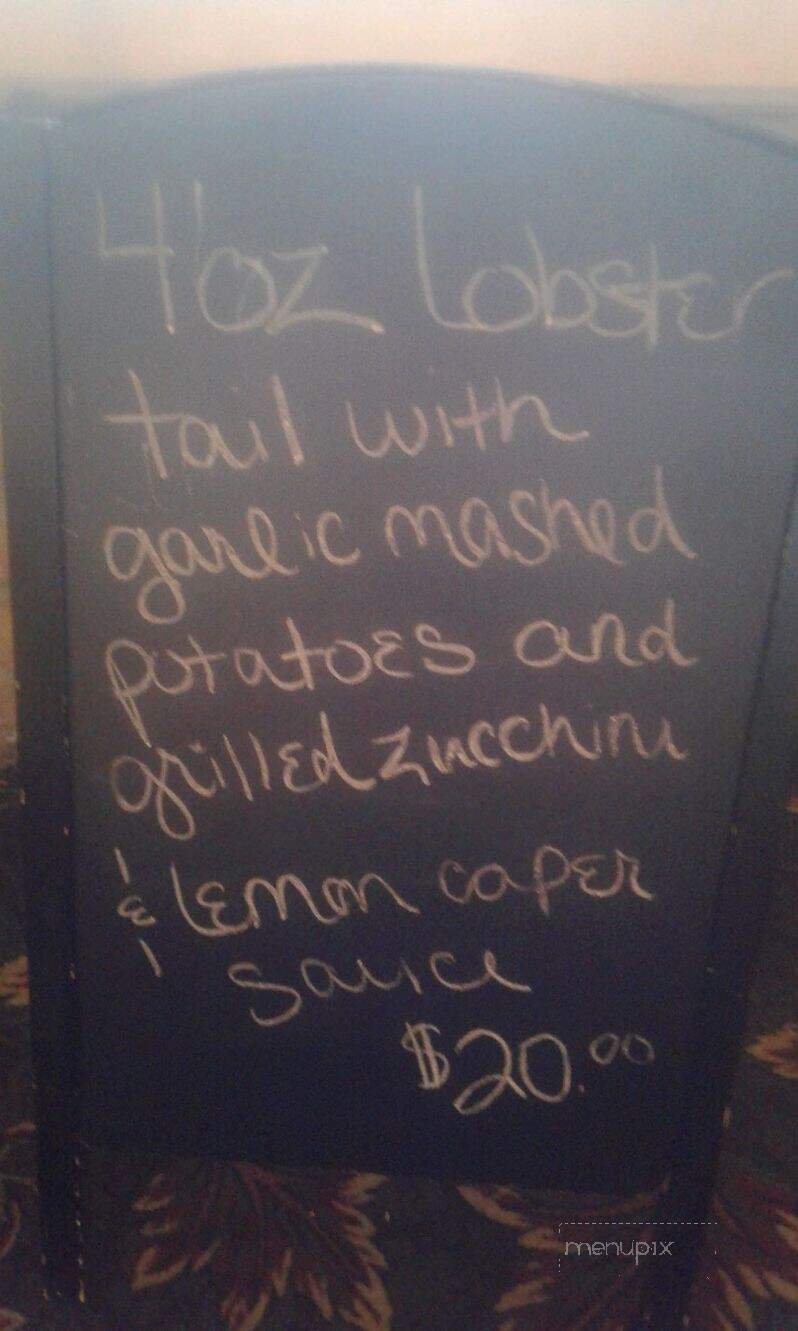 4'oz Lobster
tail with
garlic mashed
potatoes and
grilled zucchini
& lemon caper
sauce
$20.00
menupix